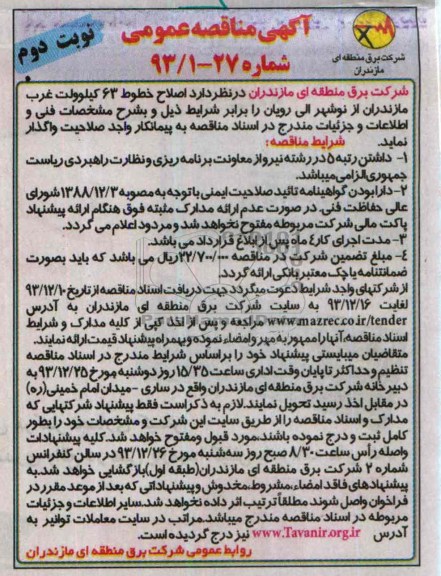 نوبت دوم
آگهی مناقصه عمومی
شماره ۲۷-۹۳/۱
شرکت برق منطقه ای
مازندران
شرکت برق منطقه ای مازندران درنظر دارد اصلاح خطوط ۶۳ کیلوولت غرب
مازندران از نوشهر الی رویان را برابر شرایط ذیل و بشرح مشخصات فنی و
اطلاعات و جزئیات مندرج در اسناد مناقصه به پیمانکار واجد صلاحیت واگذار
نماید. شرایط مناقصه:
۱- داشتن رتبه ۵ در رشته نیرو از معاونت برنامه ریزی و نظارت راهبردی ریاست
جمهوری الزامی میباشد.
۲- دارا بودن گواهینامه تائید صلاحیت ایمنی با توجه به مصوبه ۱۳۸۸/۱۲/۳ شورای
عالی حفاظت فنی. در صورت عدم ارائه مدارک مثبته فوق هنگام ارائه پیشنهاد
پاکت مالی شرکت مربوطه مفتوح نخواهد شد و مردود اعلام می گردد.
۳- مدت اجرای کار ۴ ماه پس از ابلاغ قرارداد می باشد.
۴- مبلغ تضمین شرکت در مناقصه ۲۲/۷۰۰/۰۰۰ ریال می باشد که باید بصورت
ضمانتنامه یا چک معتبر بانکی ارائه گردد.
از شرکتهای واجد شرایط دعوت میگردد جهت دریافت اسناد مناقصه از تاریخ ۹۳/۱۲/۱۰
لغایت ۹۳/۱۲/۱۶ به سایت شرکت برق منطقه ای مازندران به آدرس
www.mazrec.co.ir/tender مراجعه و پس از اخذ کپی از کلیه مدارک و شرایط
اسناد مناقصه، آنها را ممهور به مهر و امضاء نموده و بهمراه پیشنهاد قیمت ارائه نمایند.
متقاضیان میبایستی پیشنهاد خود را براساس شرایط مندرج در اسناد مناقصه
تنظیم و حداکثر تا پایان وقت اداری ساعت ۱۵/۳۵ روز دوشنبه مورخ ۹۳/۱۲/۲۵ به
دبیرخانه شرکت برق منطقه ای مازندران واقع در ساری - میدان امام خمینی(ره)
در مقابل اخذ رسید تحویل نمایند. لازم به ذکر است فقط پیشنهاد شرکتهایی که
مدارک و اسناد مناقصه را از طریق سایت این شرکت و مشخصات خود را بطور
کامل ثبت و درج نموده باشند، مورد قبول و مفتوح خواهد شد. کلیه پیشنهادات
واصله رأس ساعت ۸/۳۰ صبح روز سه شنبه مورخ ۹۳/۱۲/۲۶ در سالن کنفرانس
شماره ۲ شرکت برق منطقه ای مازندران (طبقه اول) بازگشایی خواهد شد. به
پیشنهادهای فاقد امضاء، مشروط، مخدوش و پیشنهاداتی که بعد از موعد مقرر در
فراخوان واصل شوند. مطلقاً ترتیب اثر داده نخواهد شد. سایر اطلاعات و جزئیات
مربوطه در اسناد مناقصه مندرج میباشد. مراتب در سایت معاملات توانیر به
آدرس www.Tavanir.org.ir نیز درج گردیده است.
روابط عمومی شرکت برق منطقه ای مازندران